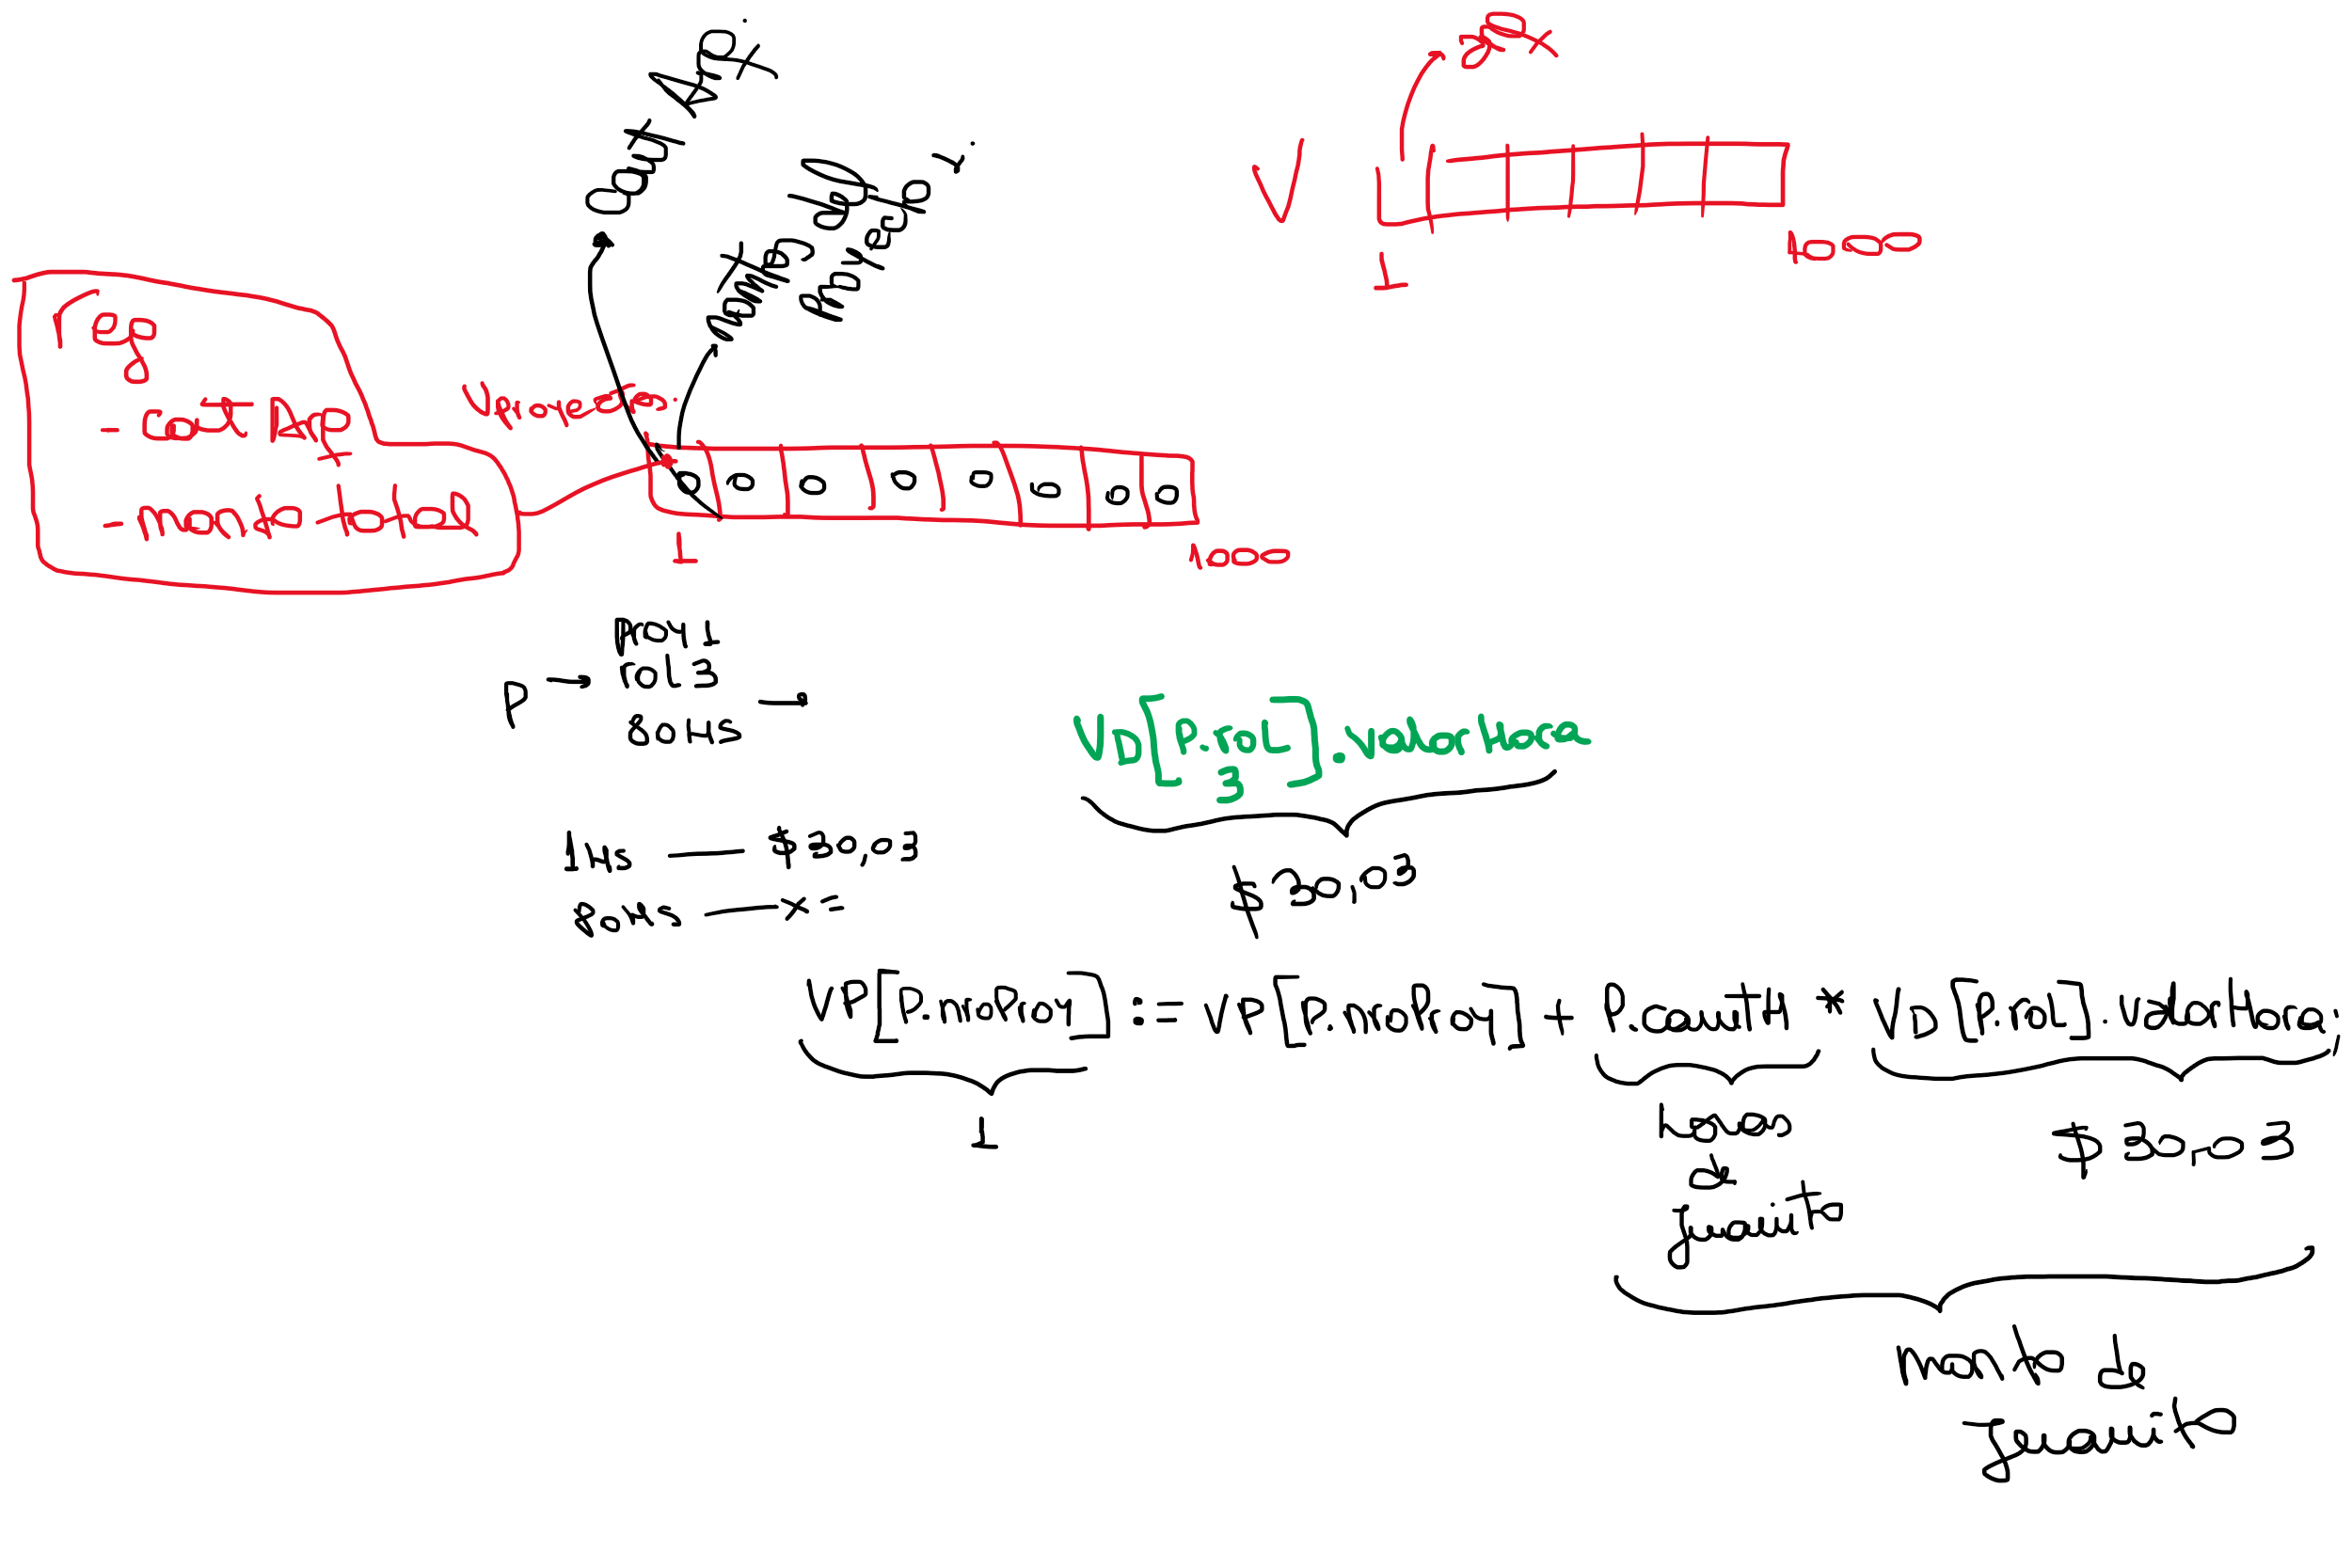 V
1
1000
cant Arq.
monto del
proyecto 1.
reg
- cant Arq
- monto total
1
1000
0 0 0 0 0 0 0 0
P →
proy 1
rol 3
80 hs
VD[P.rol].valorhora
3
$ 30,03
1 hs — $30,03
80 hs — x =
VP[P.nroProy] := VP[P.nroProy] + P.cantH * VD[P.rol].valorHora;
1
horas
de
juanito
$ 30,03
monto de
juanito